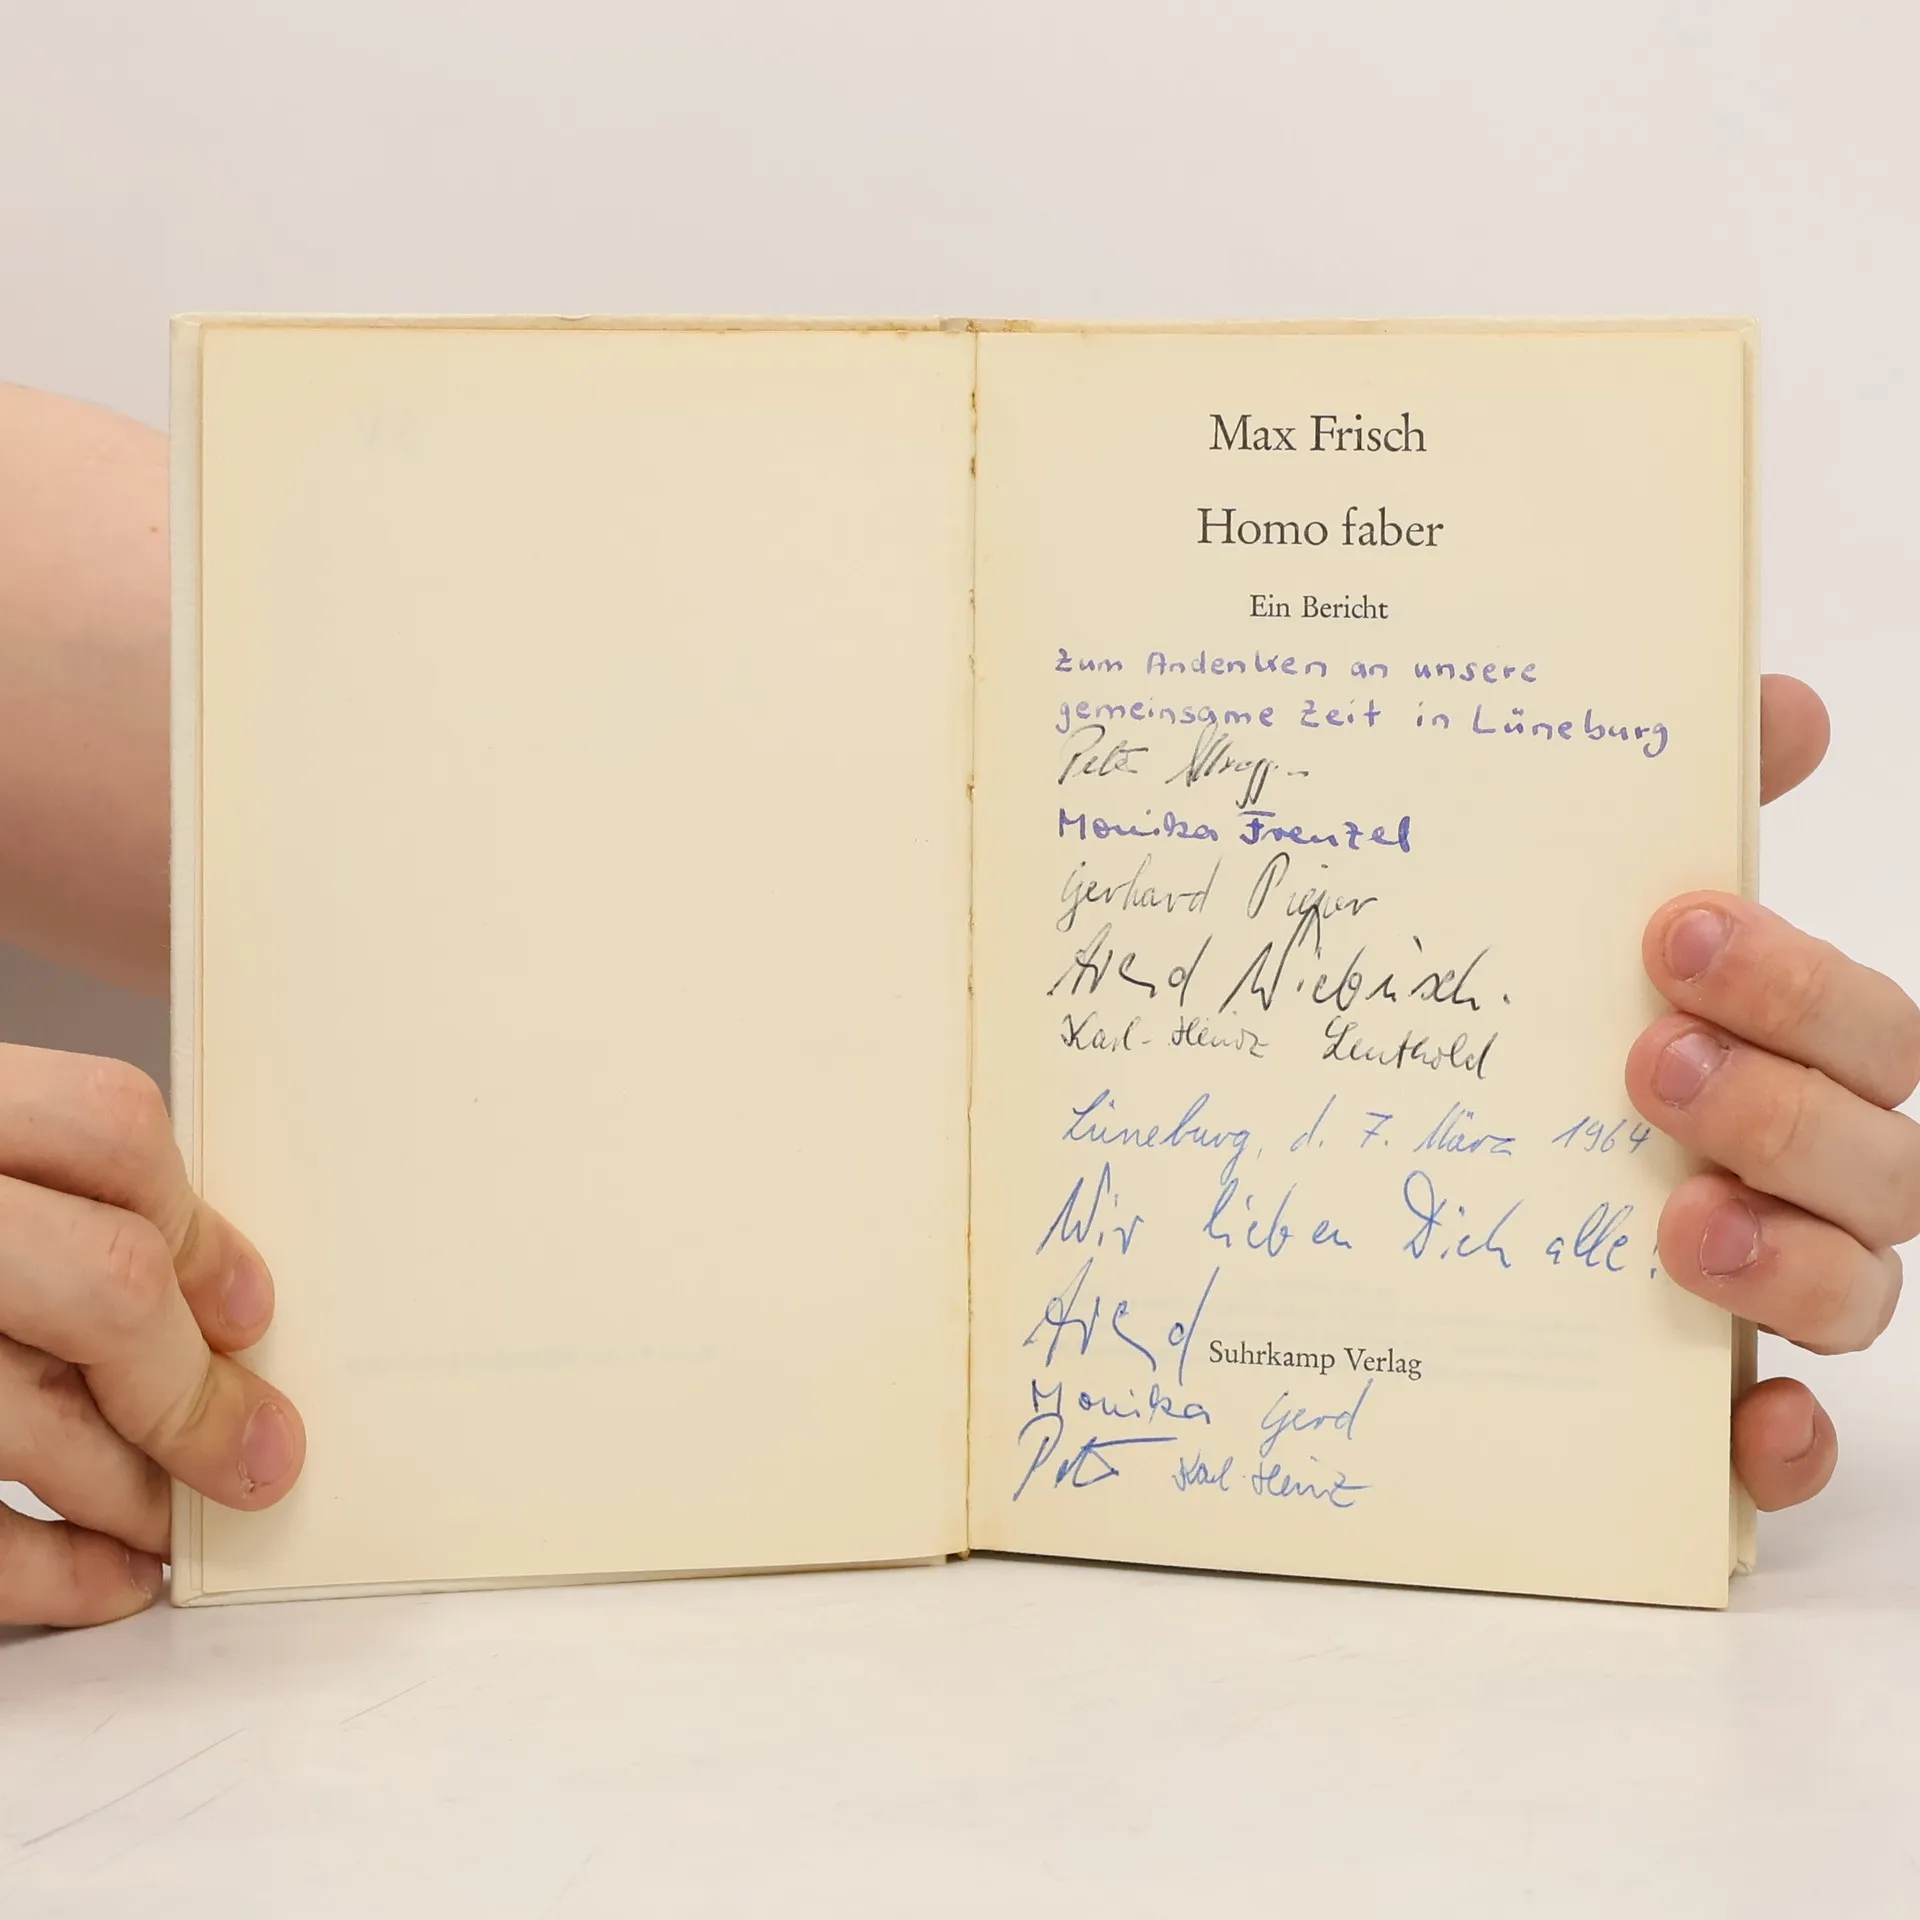 Max Frisch
Homo faber
Ein Bericht
Zum Andenken an unsere
gemeinsame Zeit in Lüneburg
Peter
Monika Frenzel
Gerhard Pieper
Arend Wiebusch.
Karl-Heinz Leuthold
Lüneburg, d. 7. März 1964
Wir lieben Dich alle!
Arend
Suhrkamp Verlag
Monika Gerd
Peter Karl-Heinz